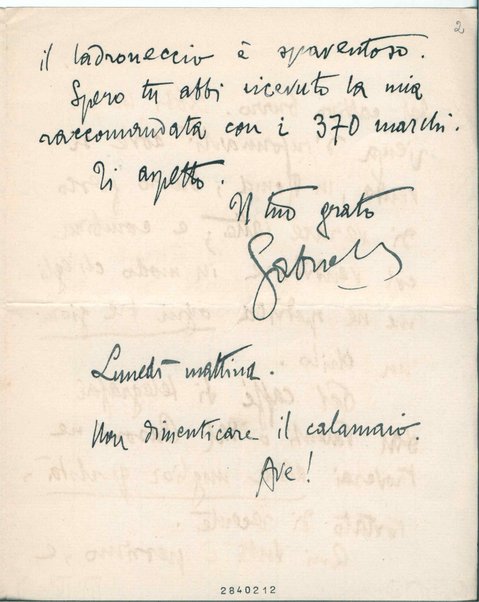 2
il ladroneccio è spaventoso.
Spero tu abbi ricevuto la mia
raccomandata con i 370 marchi.
Ti aspetto.
Il tuo grato
Gabriele
Lunedì mattina.
Non dimenticare il calamaio.
Ave!
2840212